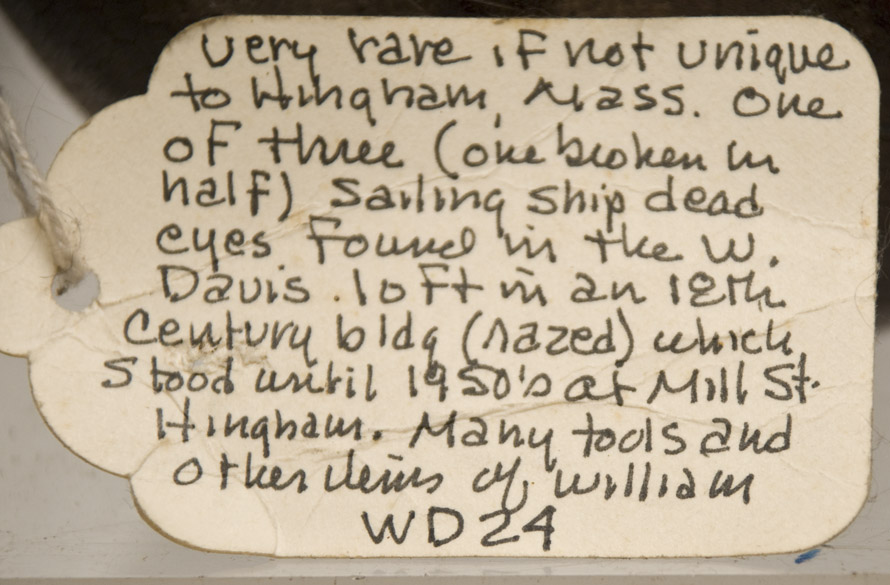 very rare if not unique
to Hingham, Mass. One
of three (one broken in
half) Sailing ship dead
eyes found in the W.
Davis. loft in an 18th
Century bldg (razed) which
Stood until 1950's at Mill St.
Hingham. Many tools and
other items of William
WD24